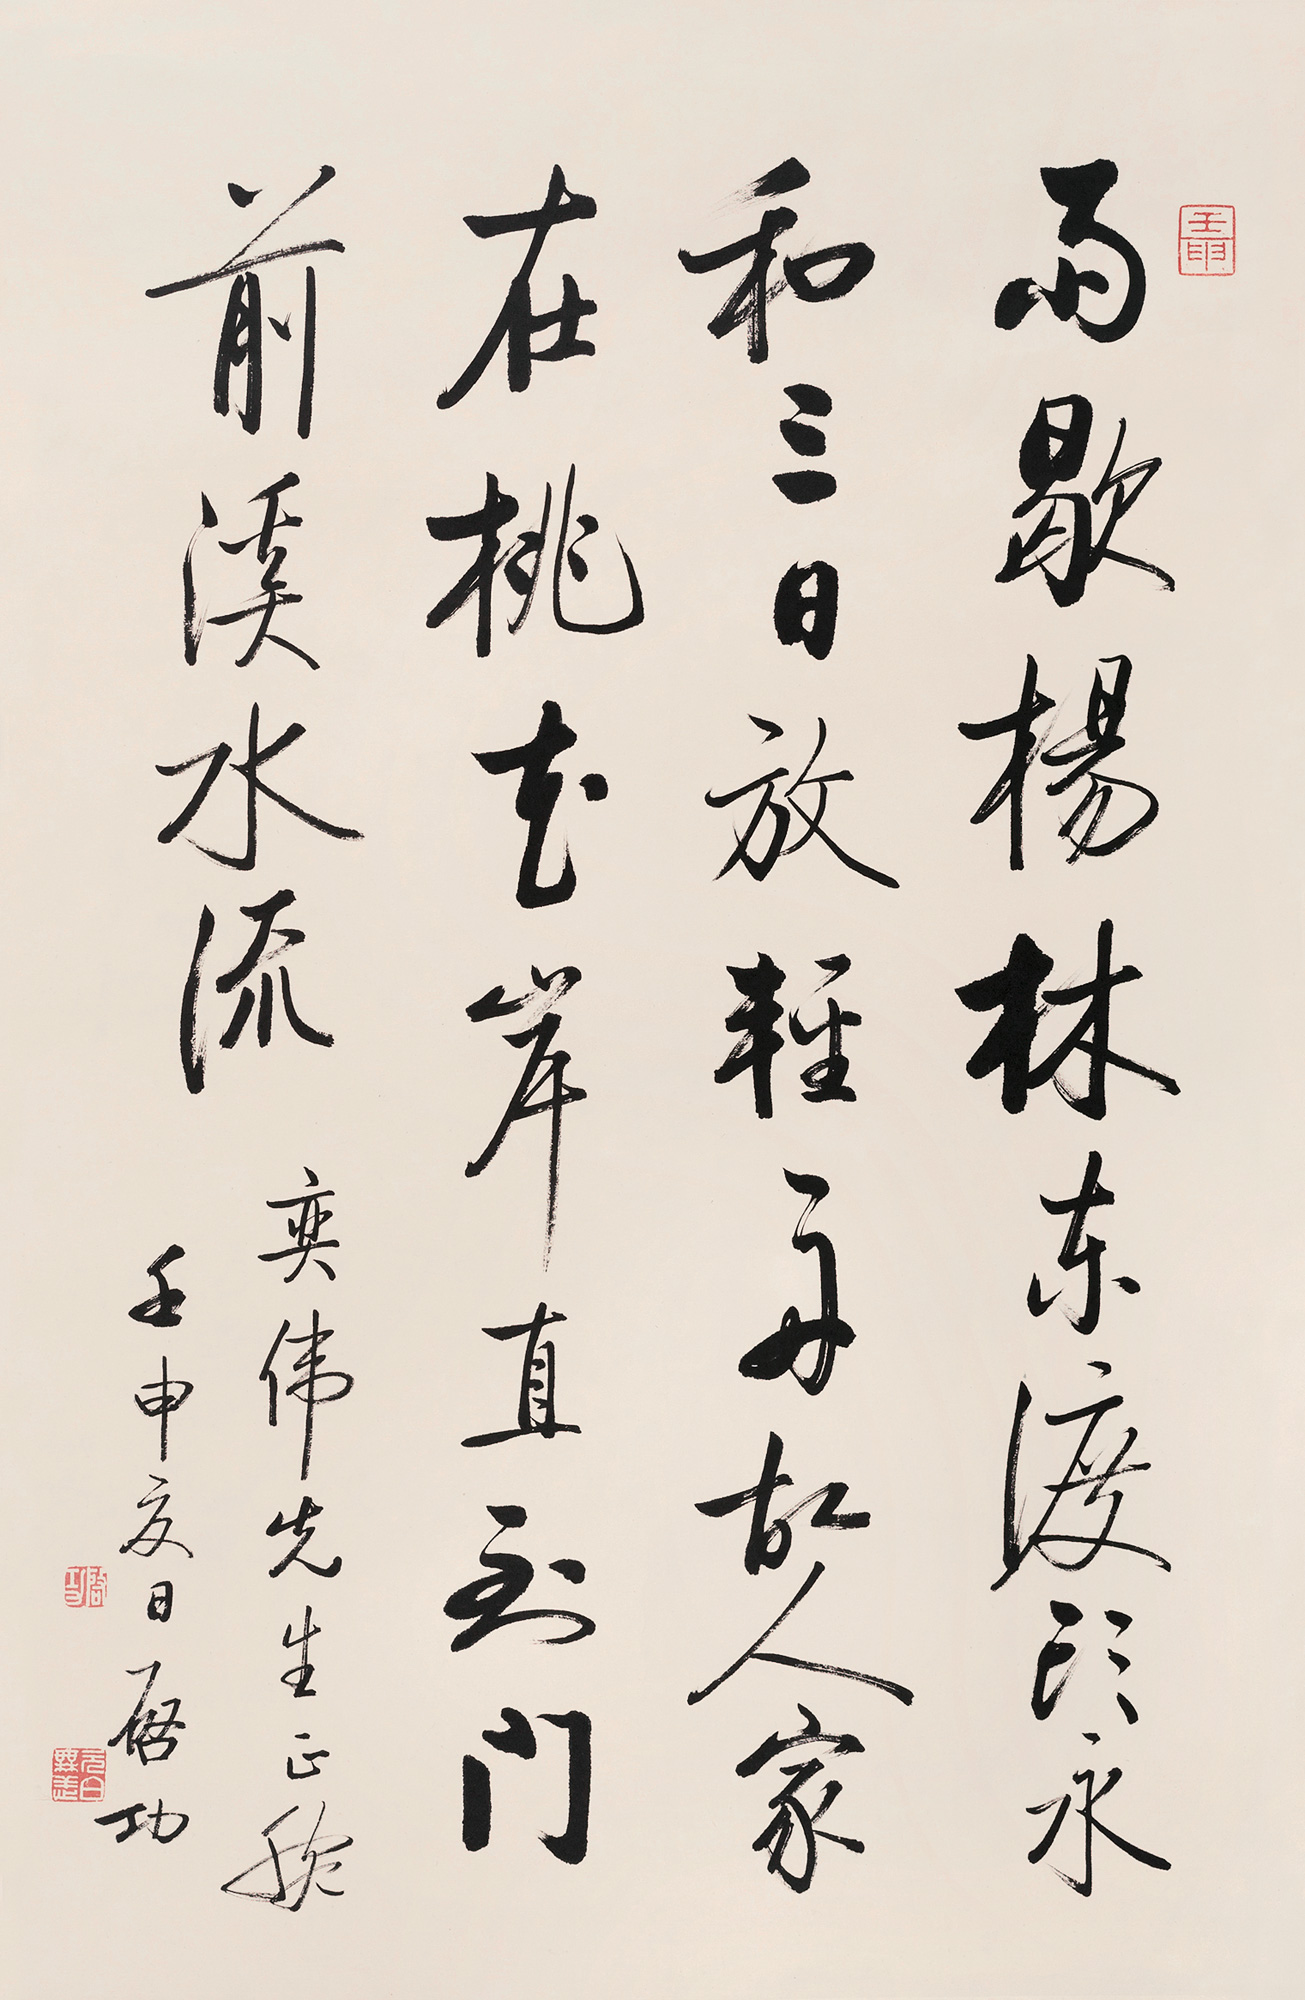 壬申
雨歇楊林東渡頭永
和三日放輕舟故人家
在桃花岸直到门
前溪水流
奕伟先生正腕
壬申夏日啓功
啓功